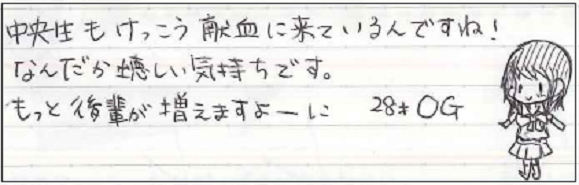 中央生もけっこう献血に来ているんですね!
なんだか嬉しい気持ちです。
もっと後輩が増えますよーに 28才OG